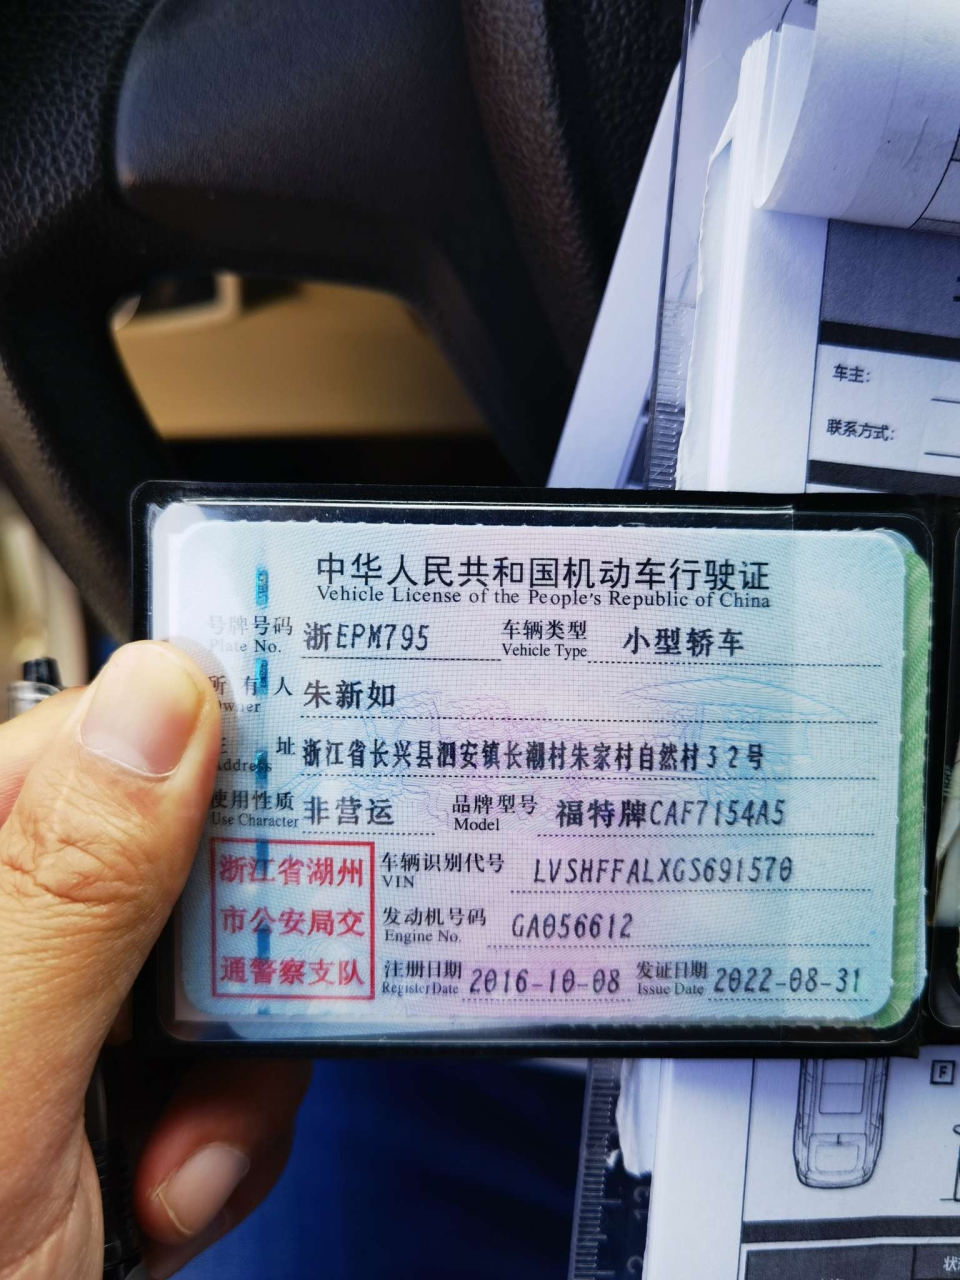 车主:
联系方式:
中华人民共和国机动车行驶证
Vehicle License of the People's Republic of China
号牌号码 浙EPM795 车辆类型 小型轿车
Plate No. Vehicle Type
所有人 朱新如
Owner
址 浙江省长兴县泗安镇长潮村朱家村自然村32号
Address
使用性质 非营运 品牌型号 福特牌CAF7154A5
Use Character Model
浙江省湖州 车辆识别代号 LVSHFFALXGS691570
VIN
市公安局交 发动机号码 GA056612
Engine No.
通警察支队 注册日期 2016-10-08 发证日期 2022-08-31
Register Date Issue Date
F